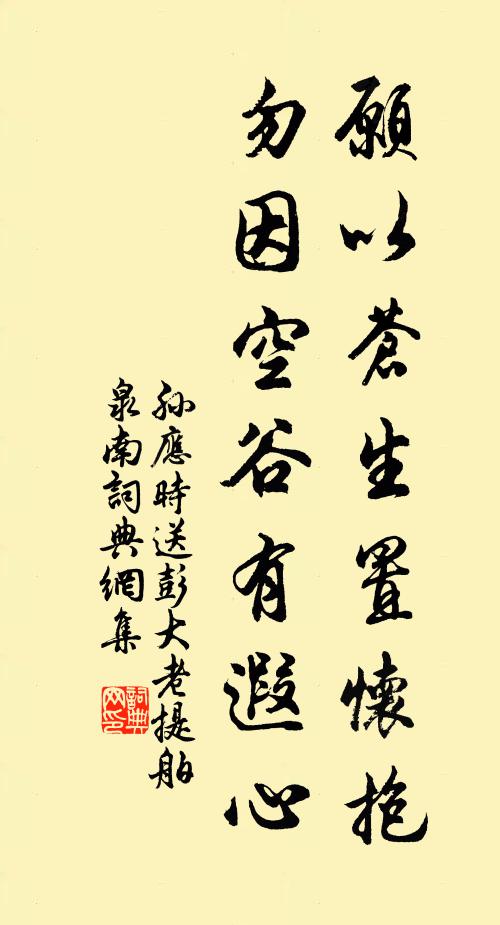 願以蒼生置懷抱
勿因空谷有遐心
孫應時送彭大老提舶
泉南詞典網集
詞典网印